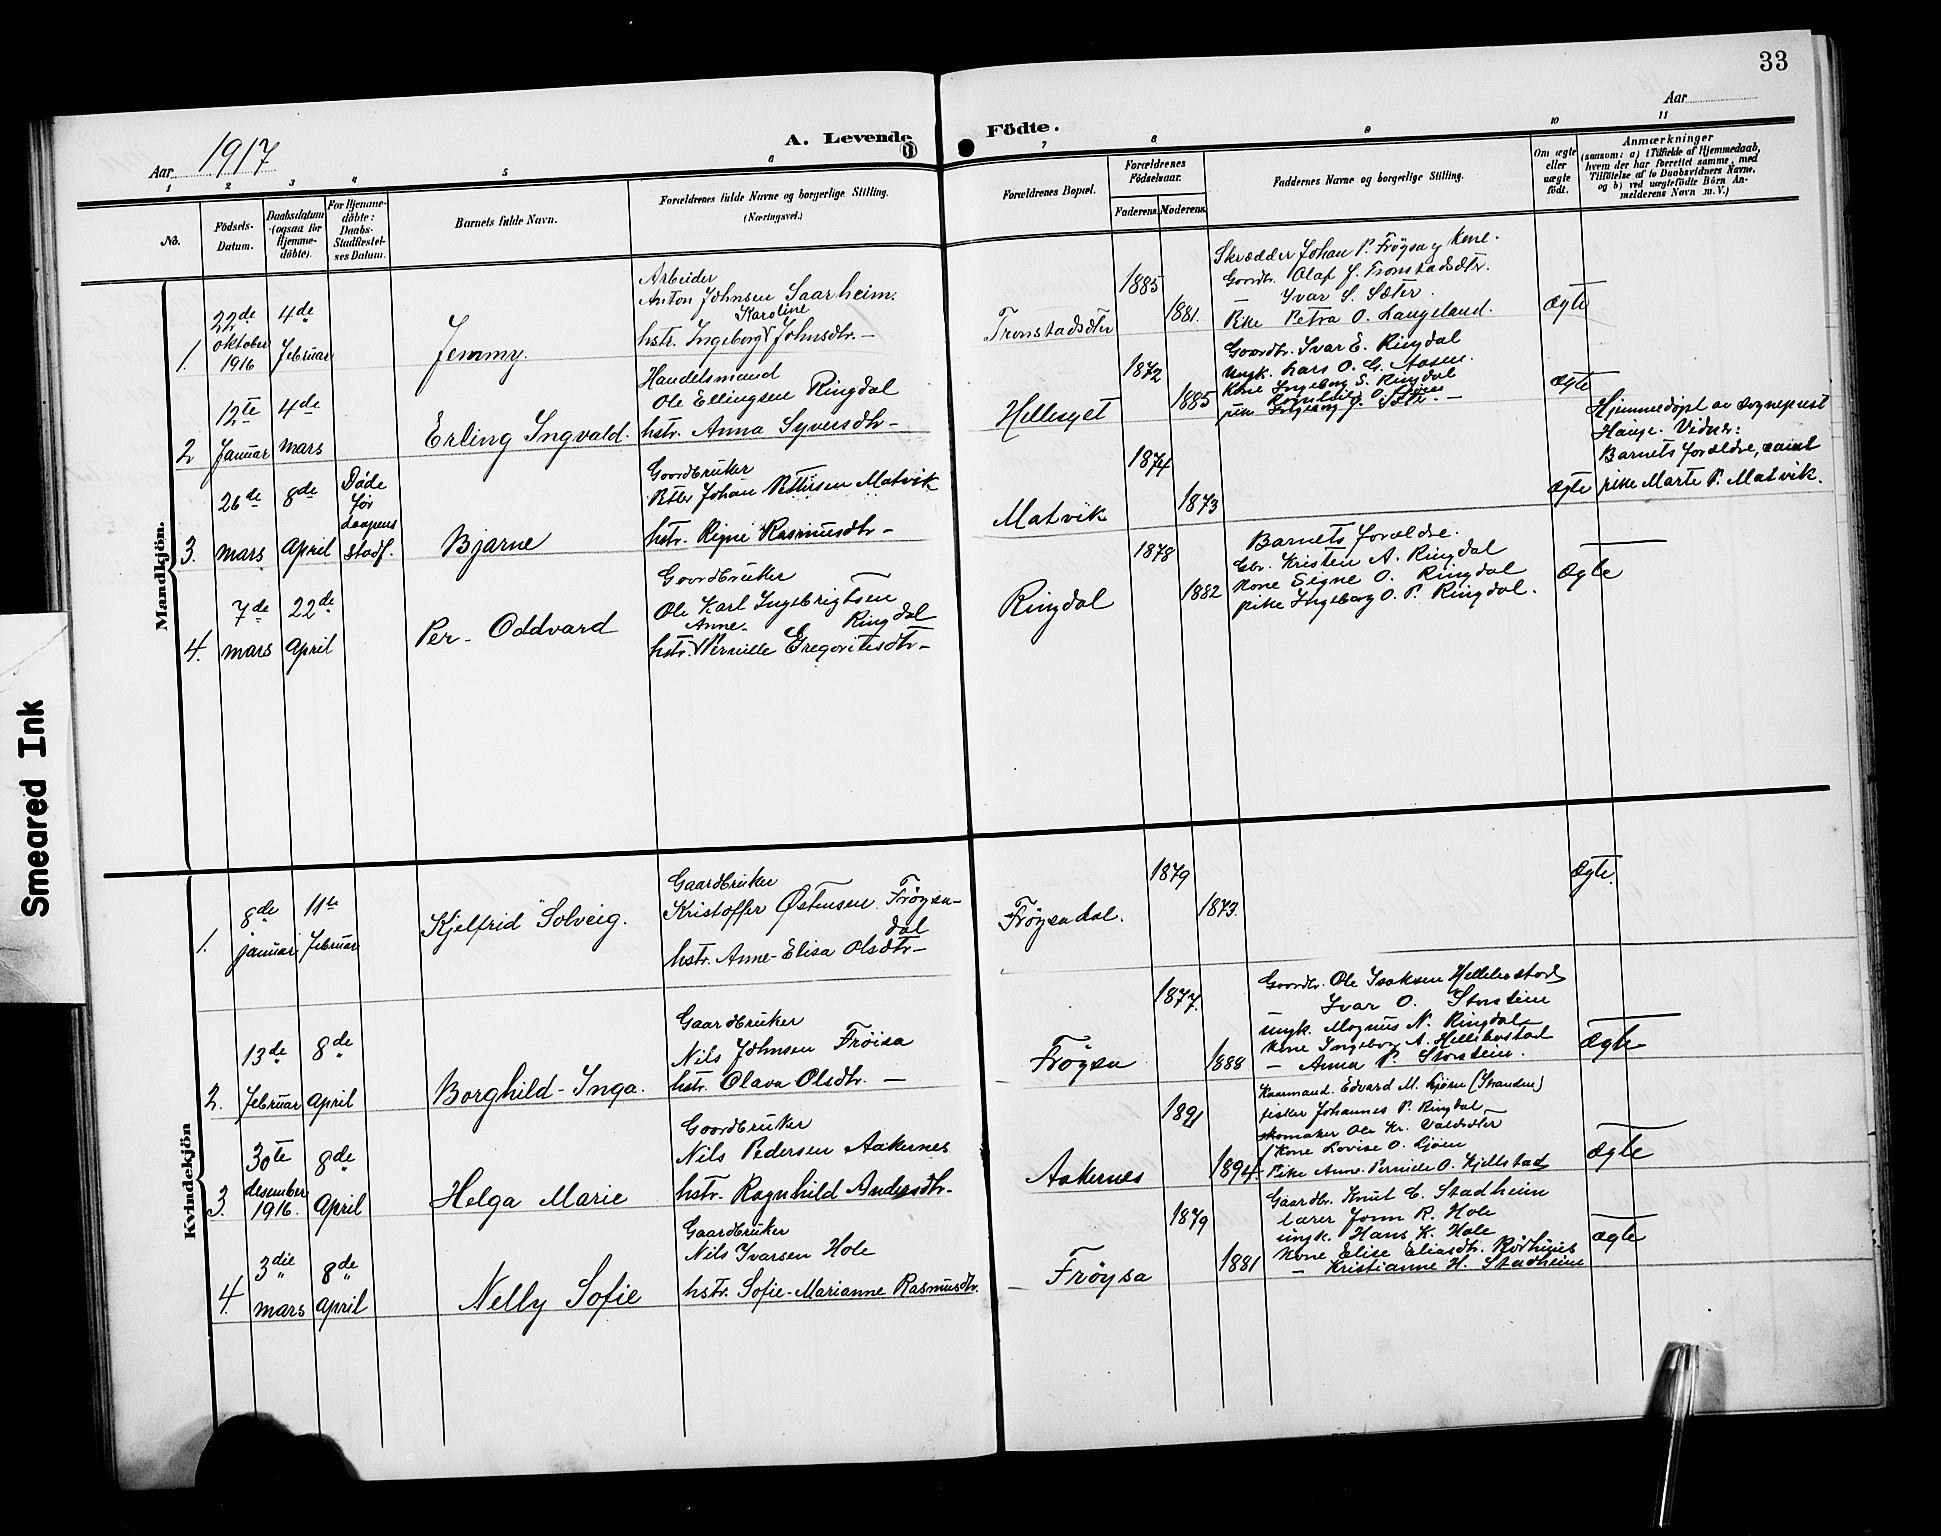 33
Aar
Aar 1917
A. Levende Födte.
1 2 3 4 5 6 7 8 9 10 11
No.
Födsels-
Datum.
Daabsdatum
(ogsaa for
Hjemme-
döbte).
For Hjemme-
döbte:
Daabs-
Stadfæstel-
ses Datum.
Barnets fulde Navn.
Forældrenes fulde Navne og borgerlige Stilling.
(Næringsvei.)
Forældrenes Bopæl.
Forældrenes
Födselsaar.
Faderens. Moderens.
Faddernes Navne og borgerlige Stilling.
Om ægte
eller
uægte
födt.
Anmærkninger
(saasom: a) i Tilfælde af Hjemmedaab,
hvem der har forrettet samme, med
Tilföielse af to Daabsvidners Navne,
og b) ved uægtefödte Börn An-
melderens Navn m. V.)
Mandkjön.
1.
22de
oktober
1916
4de
Februar
Jemmy.
Arbeider
Anton Johnsen Saarheim.
Karoline
hstr. Ingeborg Johnsdtr. —
Tronstadsdter
1885
1881.
Skrædder Johan P. Frøysa og Kone.
Goordbr. Olaf J. Tronstadsdtr.
Ivar S. Sæter.
Pike Petra O. Langeland.
Ægte
2
12te
Januar
4de
mars
Erling Ingvald.
Handelsmand
Ole Ellingsen Ringdal
hstr. Anna Syversdtr —
Hellesyet
1872
1885
Goordbr. Ivar E. Ringdal
Ungk. Lars O. G. Aasen.
Kone Ingeborg S. Ringdal
pike Ingeborg J. Sæter. —
Ægte
3.
26de
mars
8de
April
Døde
før
daapens
stadf.
Bjarne
Goordbruker
Petter Johan Pettersen Matvik
hstr. Rigni Rasmusdtr —
Matvik
1874
1873
Ægte
Hjemmedøpt av sogneprest
Hauge. Vidner:
Barnets forældre, samt
pike Marte P. Matvik.
4.
7de
mars
22de
April
Per - Oddvard
Goordbruker
Ole Karl Ingebrigtsen
Anne- Ringdal
hstr. Pernille Gregoriusdtr —
Ringdal
1878
1882
Barnets forældre.
Gbr. Kristen A. Ringdal
Kone Signe O. Ringdal
pike Ingeborg O. P. Ringdal.
Ægte
Kvindekjön
1.
8de
januar
11te
Februar
Kjelfrid Solveig.
Gaardbruker
Kristoffer Østensen Frøysa-
dal
hstr. Anne-Elisa Olsdtr —
Frøysadal.
1879
1873.
Ægte.
2.
13de
Februar
8de
April
Borghild - Inga.
Gaardbruker
Nils Johnsen Frøisa
hstr. Olava Olsdtr. —
Frøysa
1877.
1888
Goordbr. Ole Isaksen Hellebostad
Ivar O. Storstein
Ungk. Magnus N. Ringdal
Kone Ingeborg A. Hellebostad
— Anna P. Storstein.
Ægte
3.
30te
desember
1916.
8de
April
Helga Marie
Goordbruker
Nils Pedersen Aakernes
hstr. Ragnhild Andersdtr.
Aakernes
1891
1894.
Kaarmand. Edvard M. Ljøen (Stranden)
fisker Johannes P. Ringdal
skomaker Ole Kr. Valdsdter
Kone Lovise O. Ljøen
Pike Anne-Pernille O. Kjellstad
Ægte
4.
3die
mars
8de
April
Nelly Sofie
Gaardbruker
Nils Ivarsen Hole
hstr. Sofie-Marianne Rasmusdtr.
Frøysa
1879
1881
Gaardbr. Knut E. Stadheim
lærer Jonn R. Hole
ungk. Hans K. Hole
Kone Elise Eliasdtr. Rødhuus
— Kristianne H. Stadheim
Ægte
Smeared Ink